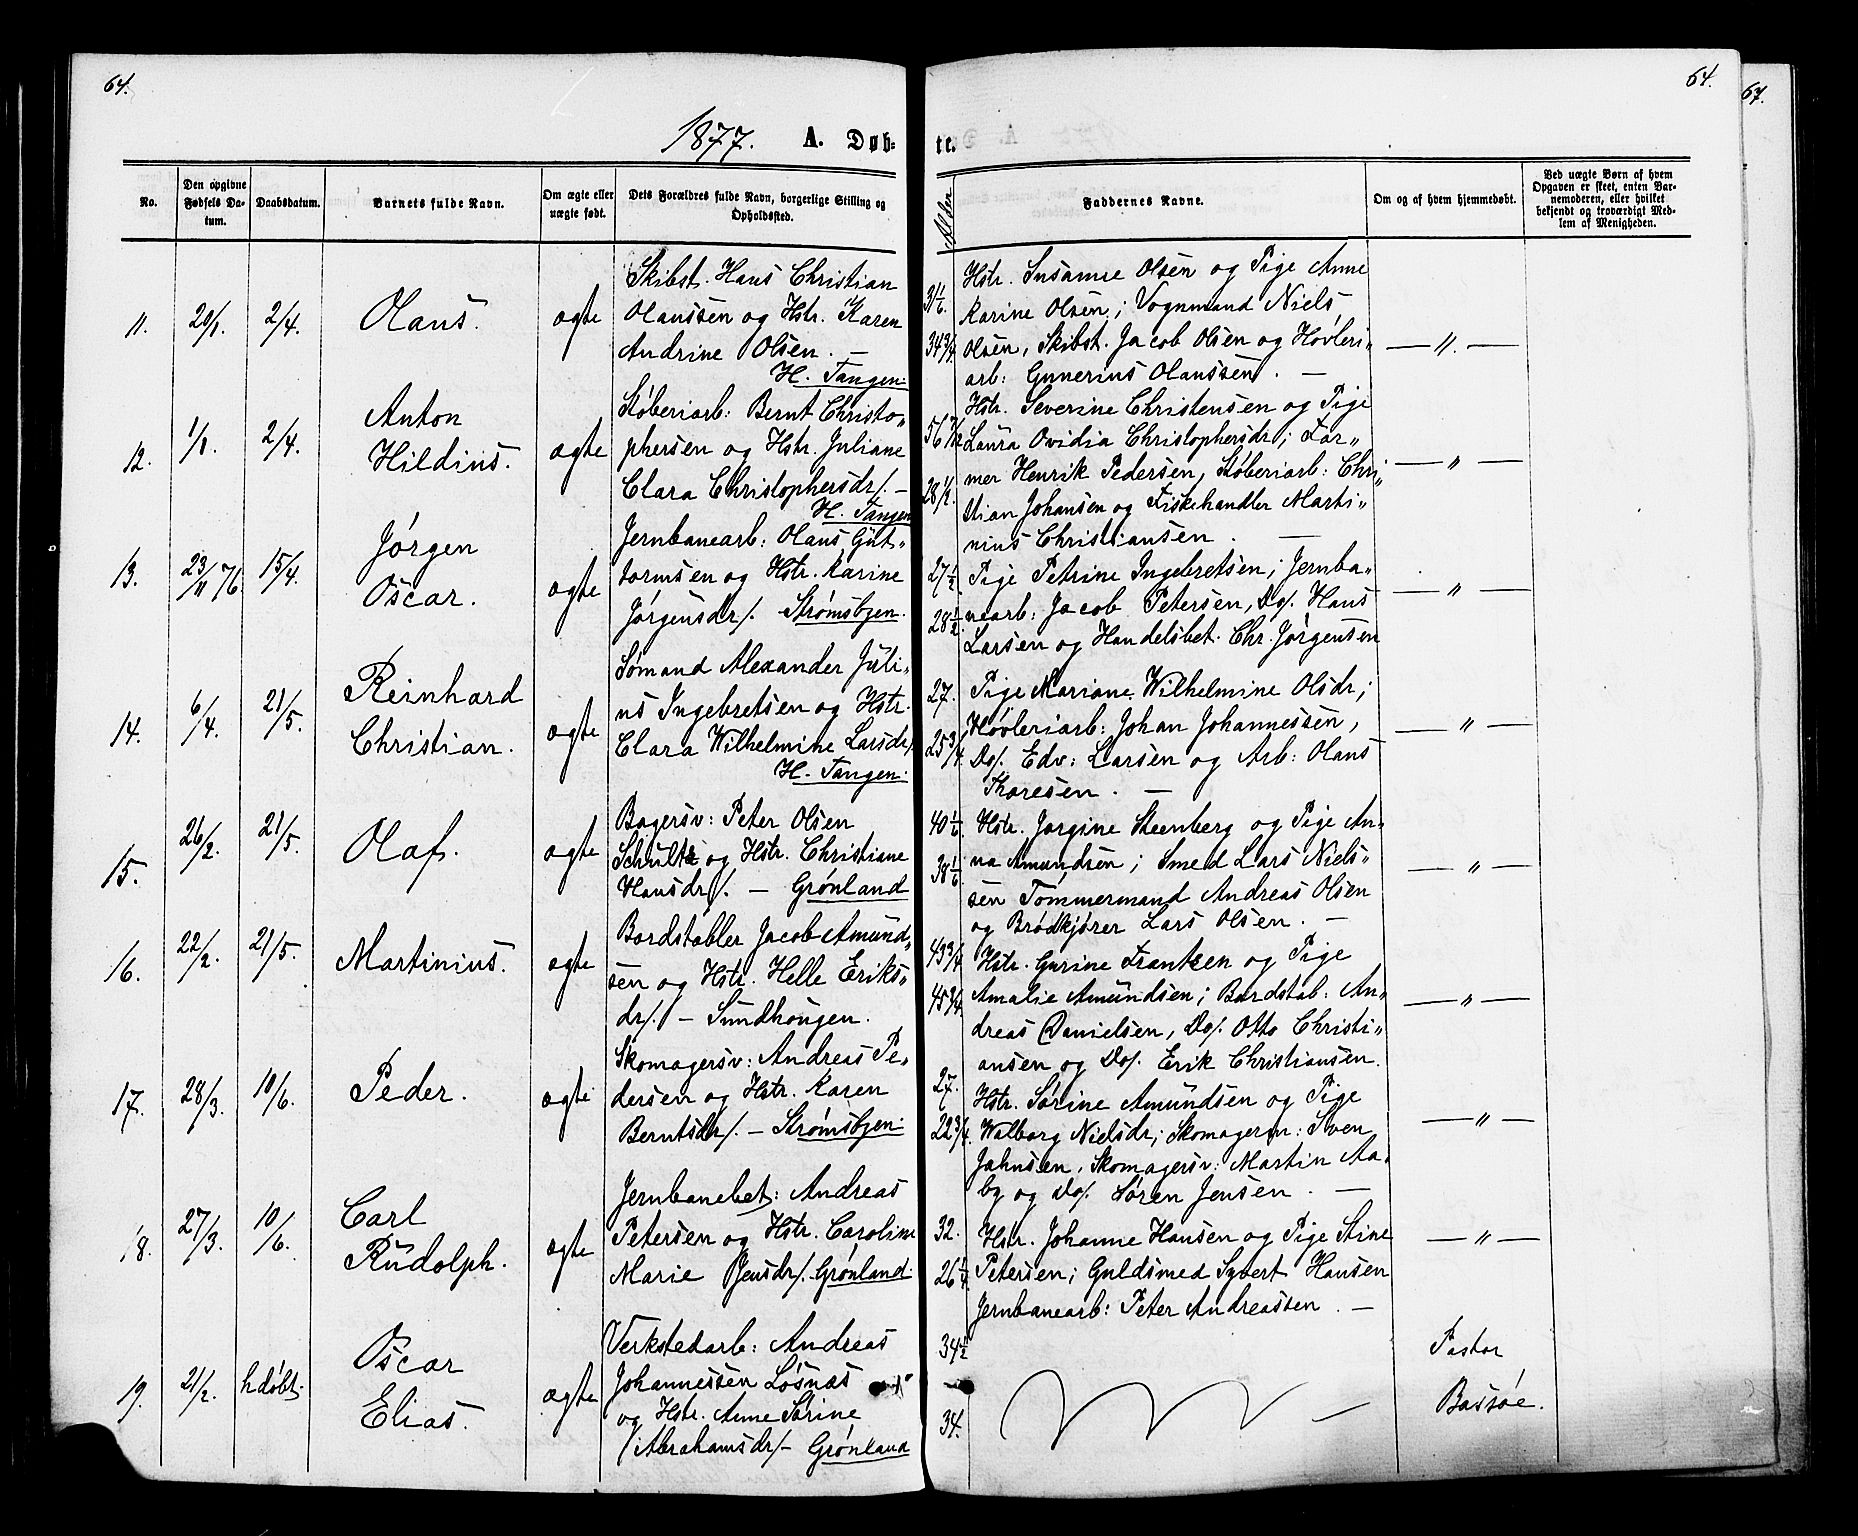 64.
64.
67.
1877. A. Døb-
te.
No.
Den opgivne Fødsels Da-
tum.
Daabsdatum.
Barnets fulde Navn.
Om ægte eller
uægte født.
Dets Forældres fulde Navn, borgerlige Stilling og
Opholdssted.
Alder
Faddernes Navne.
Om og af hvem hjemmedøbt.
Ved uægte Børn af hvem
Opgaven er skeet, enten Bar-
nemoderen, eller hvilket
bekjendt og troværdigt Med-
lem af Menigheden.
11. 20/1. 2/4. Olaus. ægte
Skibst. Hans Christian
Olaussen og Hstr. Karen
Andrine Olsen. —
H. Tangen.
31 1/6.
34 3/4
Hstr. Susanne Olsen og Pige Anne
Karine Olsen; Vognmand Niels
Olsen, Skibst. Jacob Olsen og Høvleri„
arb: Gunerius Olaussen. —
— „ —
12. 1/1. 2/4. Anton
Hildius. ægte
Støberiarb: Bernt Christo„
phersen og Hstr. Juliane
Clara Christophersdr/. —
H. Tangen
56 7/12
28 1/2.
Hstr. Severine Christensen og Pige
Laura Ovidia Christophersdr; Far„
mer Henrik Pedersen, Støberiarb: Chri„
stian Johansen og Fiskehandler Marti„
nius Christiansen. —
— „ —
13. 23/11 76. 15/4. Jørgen
Oscar. ægte
Jernbanearb: Olaus Gut„
tormsen og Hstr. Karine
Jørgensdr/. Strømsbyen.
27 1/2
28 1/2
Pige Petrine Ingebretsen; Jernba„
nearb: Jacob Petersen, Do/. Hans
Larsen og Handelsbet. Chr. Jørgensen
— „ —
14. 6/4. 21/5. Reinhard
Christian. ægte
Sømand Alexander Juli„
us Ingebretsen og Hstr.
Clara Wilhelmine Larsdr/.
H. Tangen.
27.
25 3/4
Pige Mariane Wilhelmine Olsdr;
Høvleriarb: Johan Johannessen,
Do/. Edv: Larsen og Arb: Olaus
Thoresen. —
— „ —
15. 26/2. 21/5. Olaf. ægte
Bagersv: Peter Olsen
Schultz og Hstr. Christiane
Hansdr/. — Grønland
40 1/6
38 1/6.
Hstr. Jorgine Steenberg og Pige An„
na Amundsen; Smed Lars Niels„
sen Tømmermand Andreas Olsen
og Brødkjører Lars Olsen. —
— „ —
16. 22/2. 21/5. Martinius. ægte
Bordstabler Jacob Amund„
sen og Hstr. Helle Eriks„
dr/. — Sundhougen.
43 3/4
45 3/4
Hstr. Gurine Frantzen og Pige
Amalie Amundsen; Bordstab: An„
dreas Danielsen, Do/. Otto Christi„
ansen og Do/. Erik Christiansen.
— „ —
17. 28/3. 10/6. Peder. ægte
Skomagersv: Andreas Pe„
dersen og Hstr. Karen
Berntsdr/. — Strømsbyen.
27.
22 3/4.
Hstr. Sørine Amundsen og Pige
Walborg Nielsdr; Skomagersv: Sven
Jahnsen, Skomagersv: Martin Aa„
by og Do/. Søren Jensen. —
— „ —
18. 27/3. 10/6. Carl
Rudolph. ægte
Jernbanebet: Andreas
Petersen og Hstr. Caroline
Marie Jensdr/. Grønland.
32.
26 1/4
Hstr. Johanne Hansen og Pige Stine
Petersen; Guldsmed Syvert Hansen
Jernbanearb: Peter Andreassen. —
— „ —
19. 21/2. hdøbt. Oscar
Elias. ægte
Verkstedarb: Andreas
Johannessen Løsnæs
og Hstr. Anne Sørine
Abrahamsdr/. — Grønland
34 1/2
34.
Pastor
Bassøe.